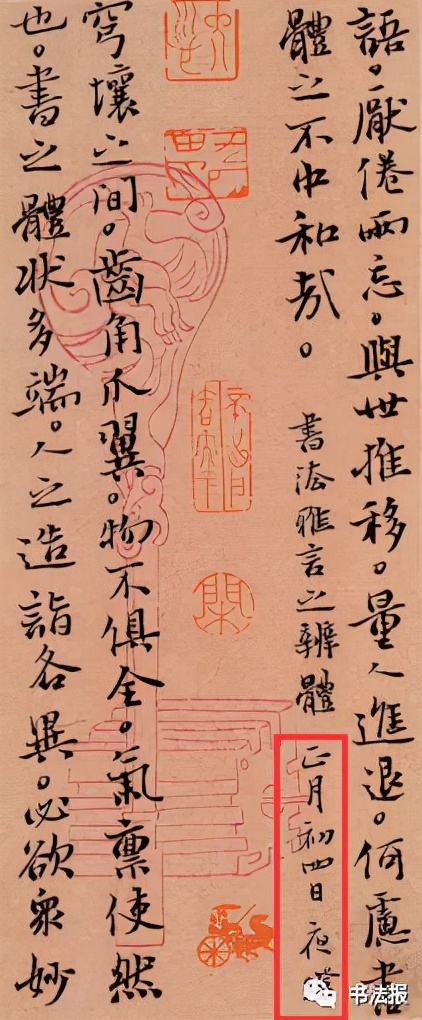 語。厭倦兩忘。與世推移。量人進退。何慮書
體之不中和哉。
書法雅言之辨體
正月初四日 夜
穹壤之间。齒角爪翼。物不俱全。氣稟使然
也。書之體状多端。人之造詣各異。必欲衆妙
书法报